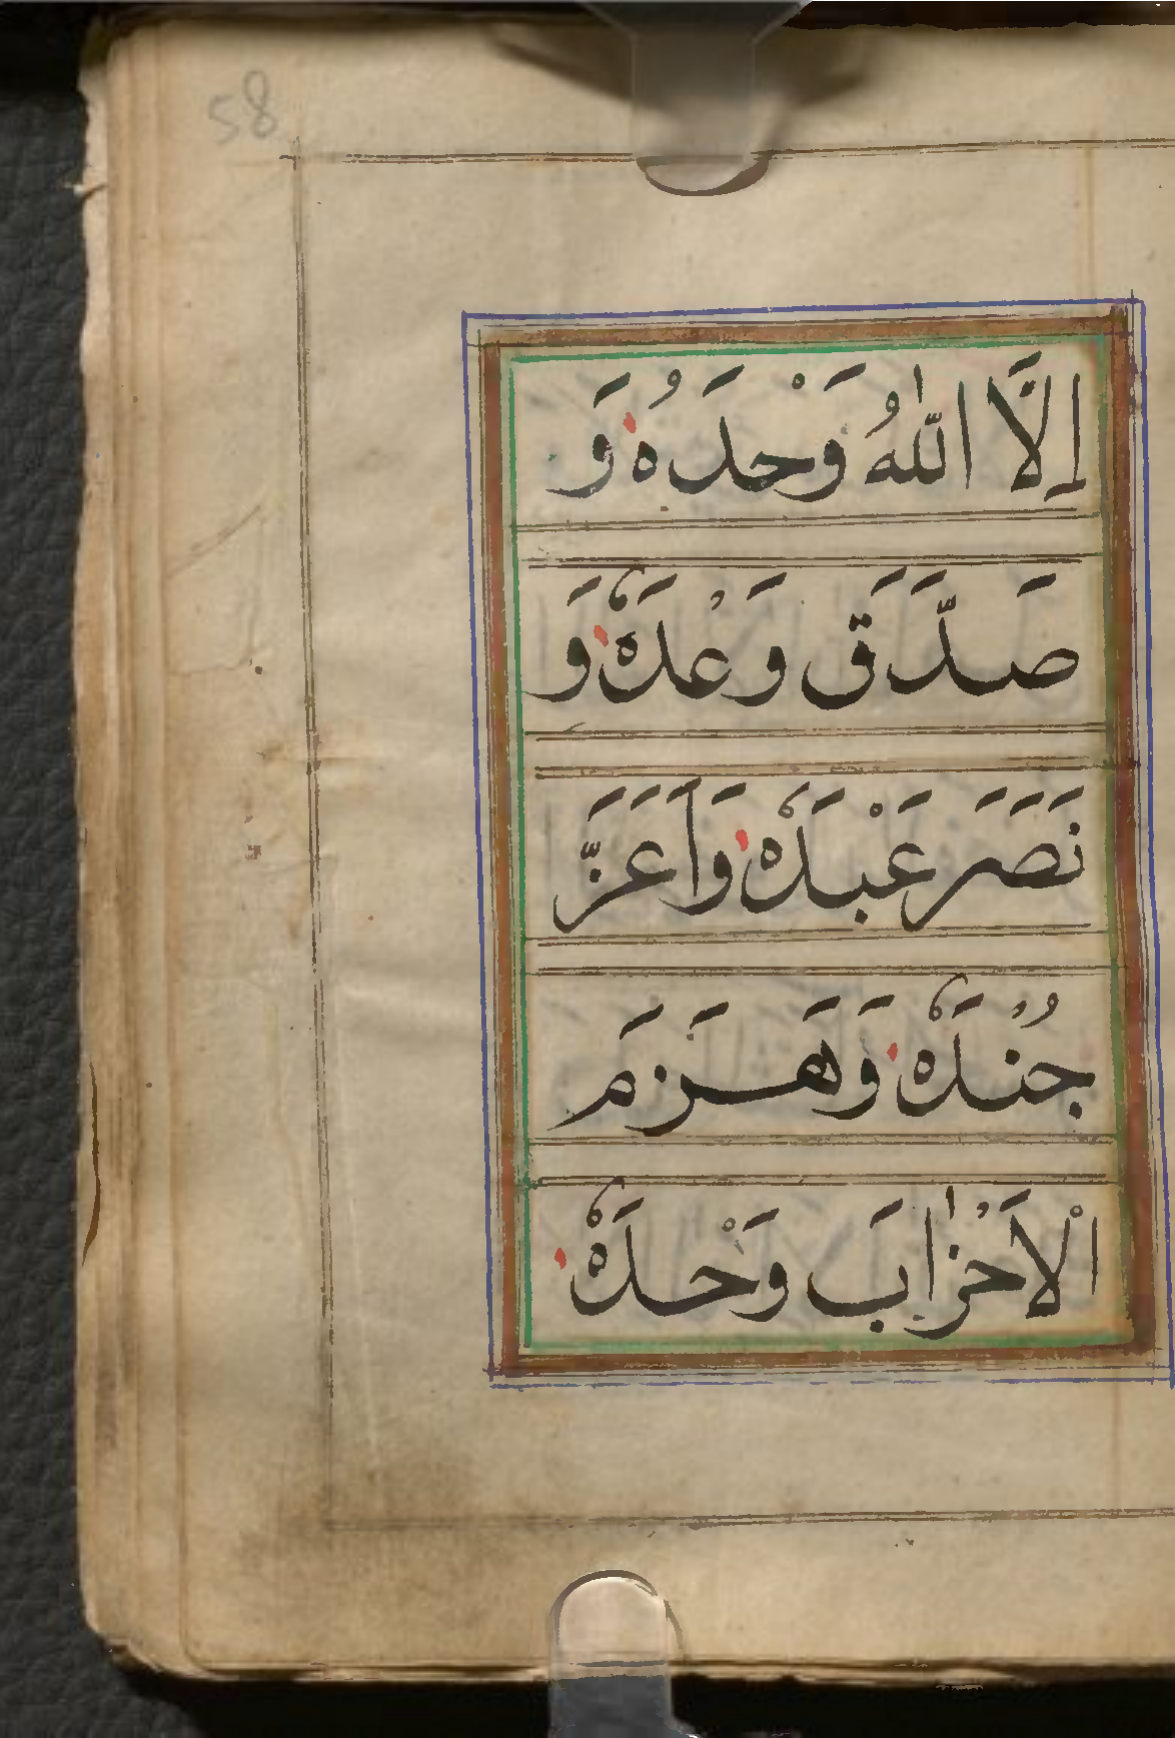 58
اِلَّا اللّٰهُ وَحْدَهُ وَ
صَدَّقَ وَعْدَهٗ وَ
نَصَرَ عَبْدَهٗ وَاَعَزَّ
جُنْدَهٗ وَهَزَمَ
الْاَحْزَابَ وَحْدَهٗ